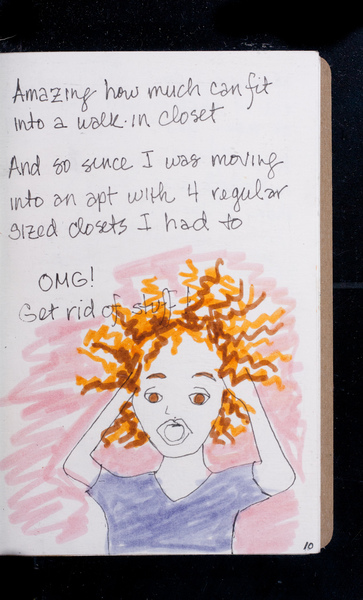 Amazing how much can fit
into a walk-in closet
And so since I was moving
into an apt with 4 regular
sized closets I had to
OMG!
Get rid of stuff!
10